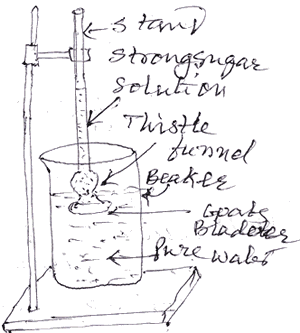 Stand
Strong sugar
Solution
Thistle
funnel
Beaker
Goats
Bladder
Pure water